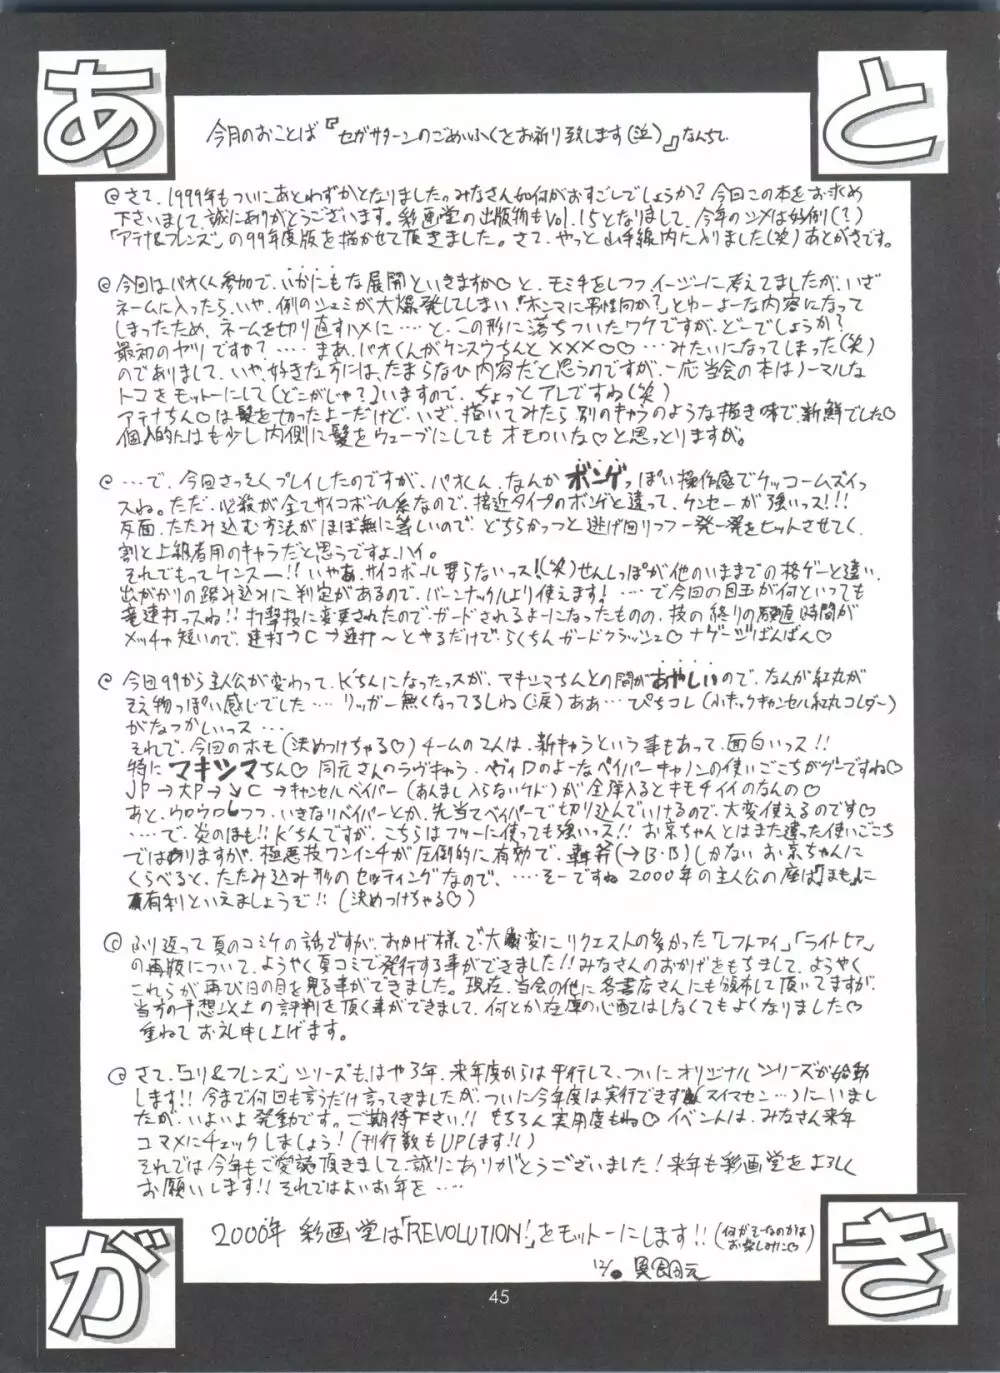 あとがき
今月のおことば『セガサターンのごめいふくをお祈り致します(泣)』なんちて
@さて、1999年もついにあとわずかとなりました。みなさん如何がおすごしでしょうか?今回この本をお求め
下さいまして、誠にありがとうございます。彩画堂の出版物もVol.15となりまして、今年のシメは好例(?)
「アテナ&フレンズ」の99年度版を描かせて頂きました。さて、やっと山手線内に入りました(笑)あとがきです。
@今回はパオくん参加で、いかにもな展開といきますか♡と、モミ手をしつつイージーに考えてましたが、いざ
ネームに入ったら、いや、例のシュミが大爆発してしまい「ホンマに男性向か?」とゆーよーな内容になって
しまったため、ネームを切り直すハメに……と、この形に落ちついたワケですが、どーでしょうか?
最初のヤツですか?……まあ、パオくんがケンスウちんと×××♡♡……みたいになってしまった(笑)
のでありまして、いや、好きな方には、たまらなひ内容だと思うのですが、一応当会の本はノーマルな
トコをモットーにして(どこがじゃ?)いますので、ちょっとアレですね(笑)
アテナちん♡は髪を切ったよーだけど、いざ、描いてみたら別のキャラのような描き味で、新鮮でした♡
個人的にはも少し内側に髪をウェーブにしてもオモロいな♡と思っとりますが。
@…で、今回さっそくプレイしたのですが、パオくん、なんかボンゲっぽい操作感でケッコームズイっ
スね。ただ、必殺が全てサイコボール系なので、接近タイプのボンゲと違って、ケンセーが強いっス!!!
反面、たたみ込む方法がほぼ無に等しいので、どちらかっつと逃げ回りつつ一発一発をヒットさせてく、
割と上級者用のキャラだと思うですよ、ハイ。
それでもってケンスー!!いやあ、サイコボール要らないっス!(笑)せんしっぽが他のいままでの格ゲーと違い、
出がかりの踏み込みに判定があるので、バーンナックルより使えます!……で今回の目玉が何といっても
竜連打っスね!!打撃技に変更されたので、ガードされるよーになったものの、技の終りの硬直時間が
メッチャ短いので、連打→C→連打〜とやるだけで、らくちんガードクラッシュ♡ナゲージばんばん♡
@今回99から主人公が変わって、K'ちんになったっスが、マキシマちんとの間があやしいので、なんか紅丸が
そえ物っぽい感じでした……リッガー無くなってるしね(涙)ああ…ぴちコレ(小キックキャンセル紅丸コレダー)
がなつかしいっス…
それで、今回のホモ(決めつけちゃる♡)チームの2人は、新キャラという事もあって、面白いっス!!
特にマキシマちん♡同元さんのラヴキャラ、ヴィロのよーなベイパーキャノンの使いごこちがグーですね♡
JP→大P→↘C→キャンセルベイパー(あんまし入らないケド)が全弾入るとキモチイイのなんの♡
あと、ウロウロしつつ、いきなりベイパーとか、先当てベイパーで切り込んでいけるので、大変使えるのです♡
……で、炎のほも!!K'ちんですが、こちらはフツーに使っても強いっス!!お京ちゃんとはまた違った使いごこち
ではありますが、極悪技ワンインチが圧倒的に有効で、轟斧(→B・B)しかないお京ちゃんに
くらべると、たたみ込み形のセッティングなので、……そーですね2000年の主人公の座は「ほも」に
有利といえましょうぞ!!(決めつけちゃる♡)
@ふり返って夏のコミケの話ですが、おかげ様で、大変にリクエストの多かった「レフトアイ」「ライトヒア」
の再販について、ようやく夏コミで発行する事ができました!!みなさんのおかげをもちまして、ようやく
これらが再び日の目を見る事ができました。現在、当会の他に各書店さんにも頒布して頂いてますが、
当方の予想以上の評判を頂く事ができまして、何とか在庫の心配はしなくてもよくなりました♡
重ねてお礼申し上げます。
@さて、「ユリ&フレンズ」シリーズも、はや3年、来年度からは平行して、ついにオリジナルシリーズが始動
します!!今まで何回も言うだけ言ってきましたが、ついに今年度は実行できず(スイマセン…)にいまし
たが、いよいよ発動です。ご期待下さい!!もちろん実用度もね♡イベントは、みなさん来年
コマメにチェックしましょう!(刊行数もUPします!!)
それでは今年もご愛読頂きまして、誠にありがとうございました!来年も彩画堂をよろしく
お願いします!!それではよいお年を……
2000年 彩画堂は「REVOLUTION!」をモットーにします!!(何がそーなのかはお楽しみに♡)
12/● 異食同元
45